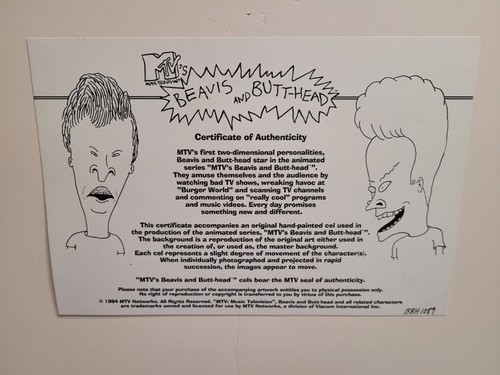 MTV'S
MUSIC TELEVISION®
BEAVIS AND BUTT-HEAD
Certificate of Authenticity
MTV's first two-dimensional personalities,
Beavis and Butt-head star in the animated
series "MTV's Beavis and Butt-head™".
They amuse themselves and the audience by
watching bad TV shows, wreaking havoc at
"Burger World" and scanning TV channels
and commenting on "really cool" programs
and music videos. Every day promises
something new and different.
This certificate accompanies an original hand-painted cel used in
the production of the animated series, "MTV's Beavis and Butt-head™".
The background is a reproduction of the original art either used in
the creation of, or used as, the master background.
Each cel represents a slight degree of movement of the character(s).
When individually photographed and projected in rapid
succession, the images appear to move.
"MTV's Beavis and Butt-head™" cels bear the MTV seal of authenticity.
Please note that your purchase of the accompanying artwork entitles you to physical possession only.
No right of reproduction or copyright is transferred to you by virtue of this purchase.
© 1994 MTV Networks. All Rights Reserved. "MTV: Music Television", Beavis and Butt-head and all related characters
are trademarks owned and licensed for use by MTV Networks, a division of Viacom International Inc.
BBH 1089